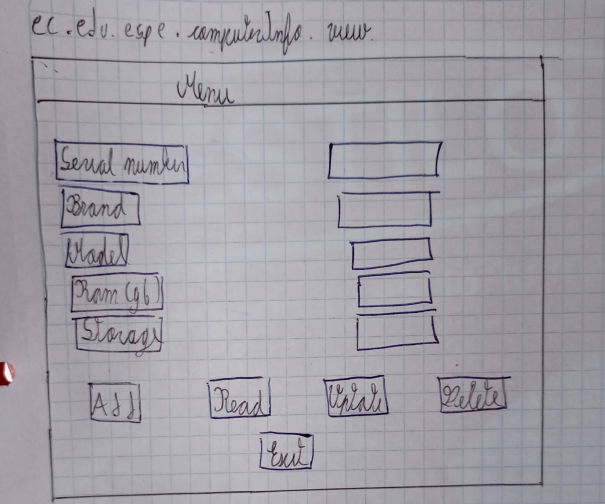 ec.edu.espe.computerInfo.view.
Menu
Serial number
Brand
Model
Ram (gb)
Storage
Add Read Update Delete
Exit